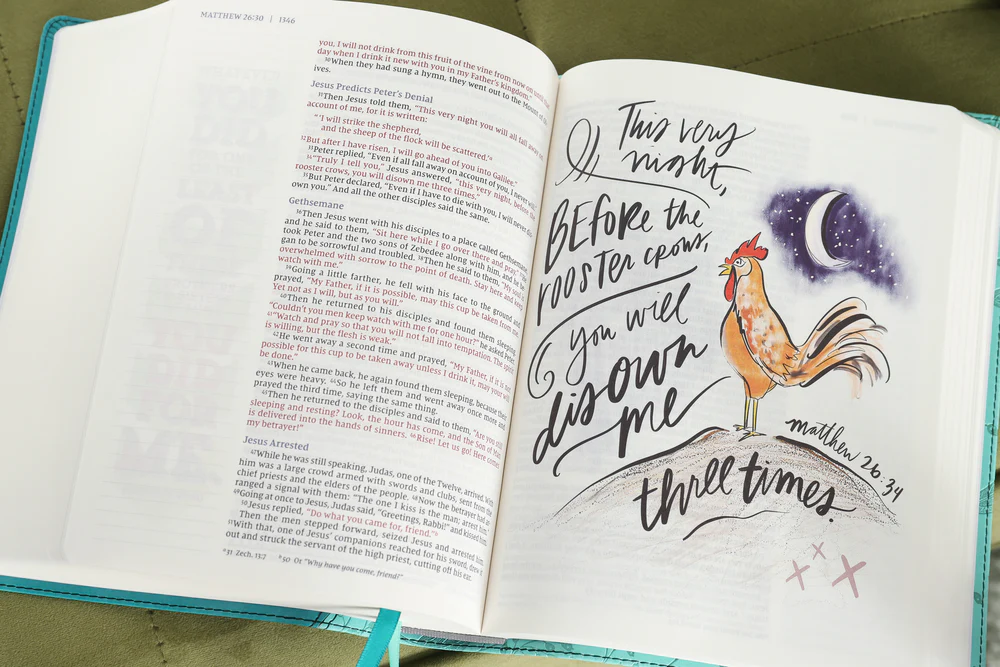 MATTHEW 26:30 | 1346
you, I will not drink from this fruit of the vine from now on until the
day when I drink it new with you in my Father's kingdom."
30When they had sung a hymn, they went out to the Mount of
ives.
Jesus Predicts Peter's Denial
31Then Jesus told them, "This very night you will all fall away on
account of me, for it is written:
"'I will strike the shepherd,
and the sheep of the flock will be scattered.'a
32But after I have risen, I will go ahead of you into Galilee."
33Peter replied, "Even if all fall away on account of you, I never will."
34"Truly I tell you," Jesus answered, "this very night, before the
rooster crows, you will disown me three times."
35But Peter declared, "Even if I have to die with you, I will never dis
own you." And all the other disciples said the same.
Gethsemane
36Then Jesus went with his disciples to a place called Gethsemane,
and he said to them, "Sit here while I go over there and pray."
took Peter and the two sons of Zebedee along with him, and he be
gan to be sorrowful and troubled. 38Then he said to them, "My soul is
overwhelmed with sorrow to the point of death. Stay here and keep
watch with me."
39Going a little farther, he fell with his face to the ground and
prayed, "My Father, if it is possible, may this cup be taken from me.
Yet not as I will, but as you will."
40Then he returned to his disciples and found them sleeping.
"Couldn't you men keep watch with me for one hour?" he asked Peter.
41"Watch and pray so that you will not fall into temptation. The spirit
is willing, but the flesh is weak."
42He went away a second time and prayed, "My Father, if it is not
possible for this cup to be taken away unless I drink it, may your will
be done."
43When he came back, he again found them sleeping, because their
eyes were heavy. 44So he left them and went away once more and
prayed the third time, saying the same thing.
45Then he returned to the disciples and said to them, "Are you still
sleeping and resting? Look, the hour has come, and the Son of Man
is delivered into the hands of sinners. 46Rise! Let us go! Here comes
my betrayer!"
Jesus Arrested
47While he was still speaking, Judas, one of the Twelve, arrived. With
him was a large crowd armed with swords and clubs, sent from the
chief priests and the elders of the people. 48Now the betrayer had ar
ranged a signal with them: "The one I kiss is the man; arrest him."
49Going at once to Jesus, Judas said, "Greetings, Rabbi!" and kissed him.
50Jesus replied, "Do what you came for, friend."b
Then the men stepped forward, seized Jesus and arrested him.
51With that, one of Jesus' companions reached for his sword, drew it
out and struck the servant of the high priest, cutting off his ear.
a31 Zech. 13:7 b50 Or "Why have you come, friend?"
This very
night,
BEFORE the
ROOSTER crows,
you will
disown
me
three times.
matthew 26:34